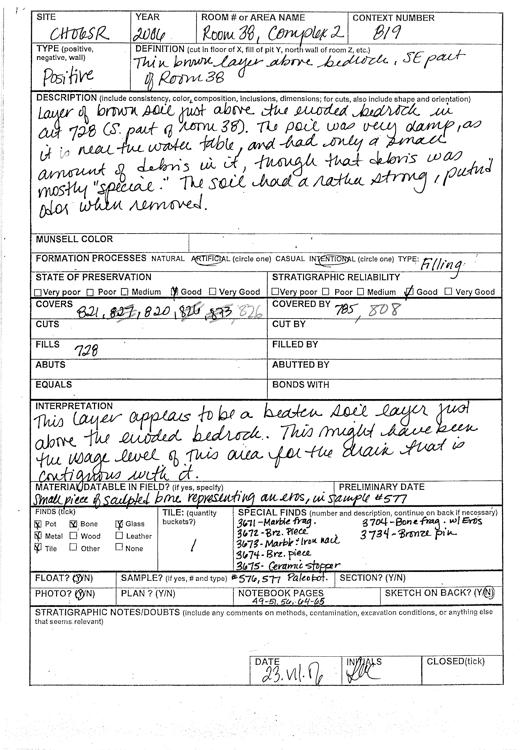 SITE YEAR ROOM # or AREA NAME CONTEXT NUMBER
CH06SR 2006 Room 38, Complex 2 819
TYPE (positive, negative, wall) DEFINITION (cut in floor of X, fill of pit Y, north wall of room Z, etc.)
Positive Thin brown layer above bedrock, SE part
of Room 38
DESCRIPTION (include consistency, color, composition, inclusions, dimensions; for cuts, also include shape and orientation)
Layer of brown soil just above the eroded bedrock in
cut 728 (S. part of room 38). The soil was very damp, as
it is near the water table, and had only a small
amount of debris in it, though that debris was
mostly "special." The soil had a rather strong, putrid
odor when removed.
MUNSELL COLOR
FORMATION PROCESSES NATURAL ARTIFICIAL (circle one) CASUAL INTENTIONAL (circle one) TYPE: Filling
STATE OF PRESERVATION STRATIGRAPHIC RELIABILITY
Very poor Poor Medium Good Very Good Very poor Poor Medium Good Very Good
COVERS 821, 827, 820, 826, 873, 826 COVERED BY 785, 808
CUTS CUT BY
FILLS 728 FILLED BY
ABUTS ABUTTED BY
EQUALS BONDS WITH
INTERPRETATION
This layer appears to be a beaten soil layer just
above the eroded bedrock. This might have been
the usage level of this area for the drain that is
contiguous with it.
MATERIAL/DATABLE IN FIELD? (if yes, specify) PRELIMINARY DATE
Small piece of sculpted bone representing an eros, in sample #577
FINDS (tick) TILE: (quantity buckets?) SPECIAL FINDS (number and description, continue on back if necessary)
Pot Bone Glass 3671-Marble frag. 3704-Bone frag. w/ Eros
Metal Wood Leather 3672-Brz. Piece 3734-Bronze pin
Tile Other None 1 3673-Marble + Iron nail
3674-Brz. piece
3675-Ceramic stopper
FLOAT? (Y/N) SAMPLE? (if yes, # and type) #576, 577 Paleobot. SECTION? (Y/N)
PHOTO? (Y/N) PLAN? (Y/N) NOTEBOOK PAGES SKETCH ON BACK? (Y/N)
49-51, 56, 64-65
STRATIGRAPHIC NOTES/DOUBTS (include any comments on methods, contamination, excavation conditions, or anything else
that seems relevant)
DATE INITIALS CLOSED(tick)
23.VI.06